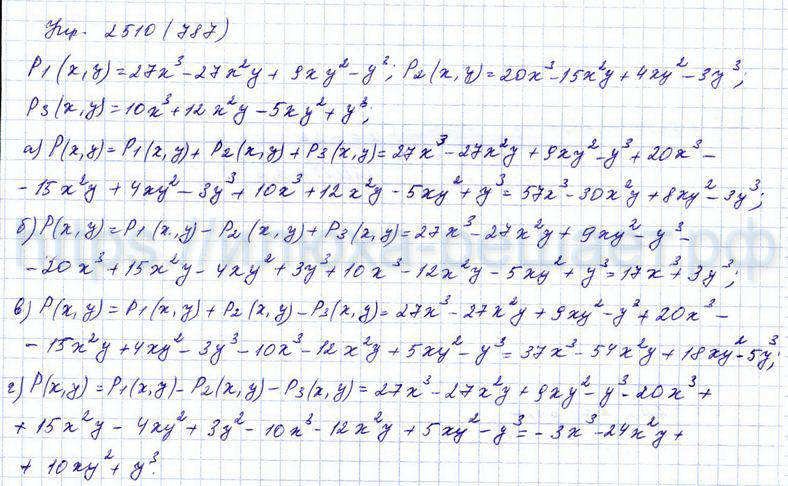 Упр. 2510 (787)
P₁(x,y)=27x³-27x²y+9xy²-y³; P₂(x,y)=20x³-15x²y+4xy²-3y³;
P₃(x,y)=10x³+12x²y-5xy²+y³;
а) P(x,y)=P₁(x,y)+P₂(x,y)+P₃(x,y)=27x³-27x²y+9xy²-y³+20x³-
-15x²y+4xy²-3y³+10x³+12x²y-5xy²+y³=57x³-30x²y+8xy²-3y³;
б) P(x,y)=P₁(x,y)-P₂(x,y)+P₃(x,y)=27x³-27x²y+9xy²-y³-
-20x³+15x²y-4xy²+3y³+10x³-12x²y-5xy²+y³=17x³+3y³;
в) P(x,y)=P₁(x,y)+P₂(x,y)-P₃(x,y)=27x³-27x²y+9xy²-y³+20x³-
-15x²y+4xy²-3y³-10x³-12x²y+5xy²-y³=37x³-54x²y+18xy²-5y³;
г) P(x,y)=P₁(x,y)-P₂(x,y)-P₃(x,y)=27x³-27x²y+9xy²-y³-20x³+
+15x²y-4xy²+3y²-10x³-12x²y+5xy²-y³=-3x³-24x²y+
+10xy²+y³.